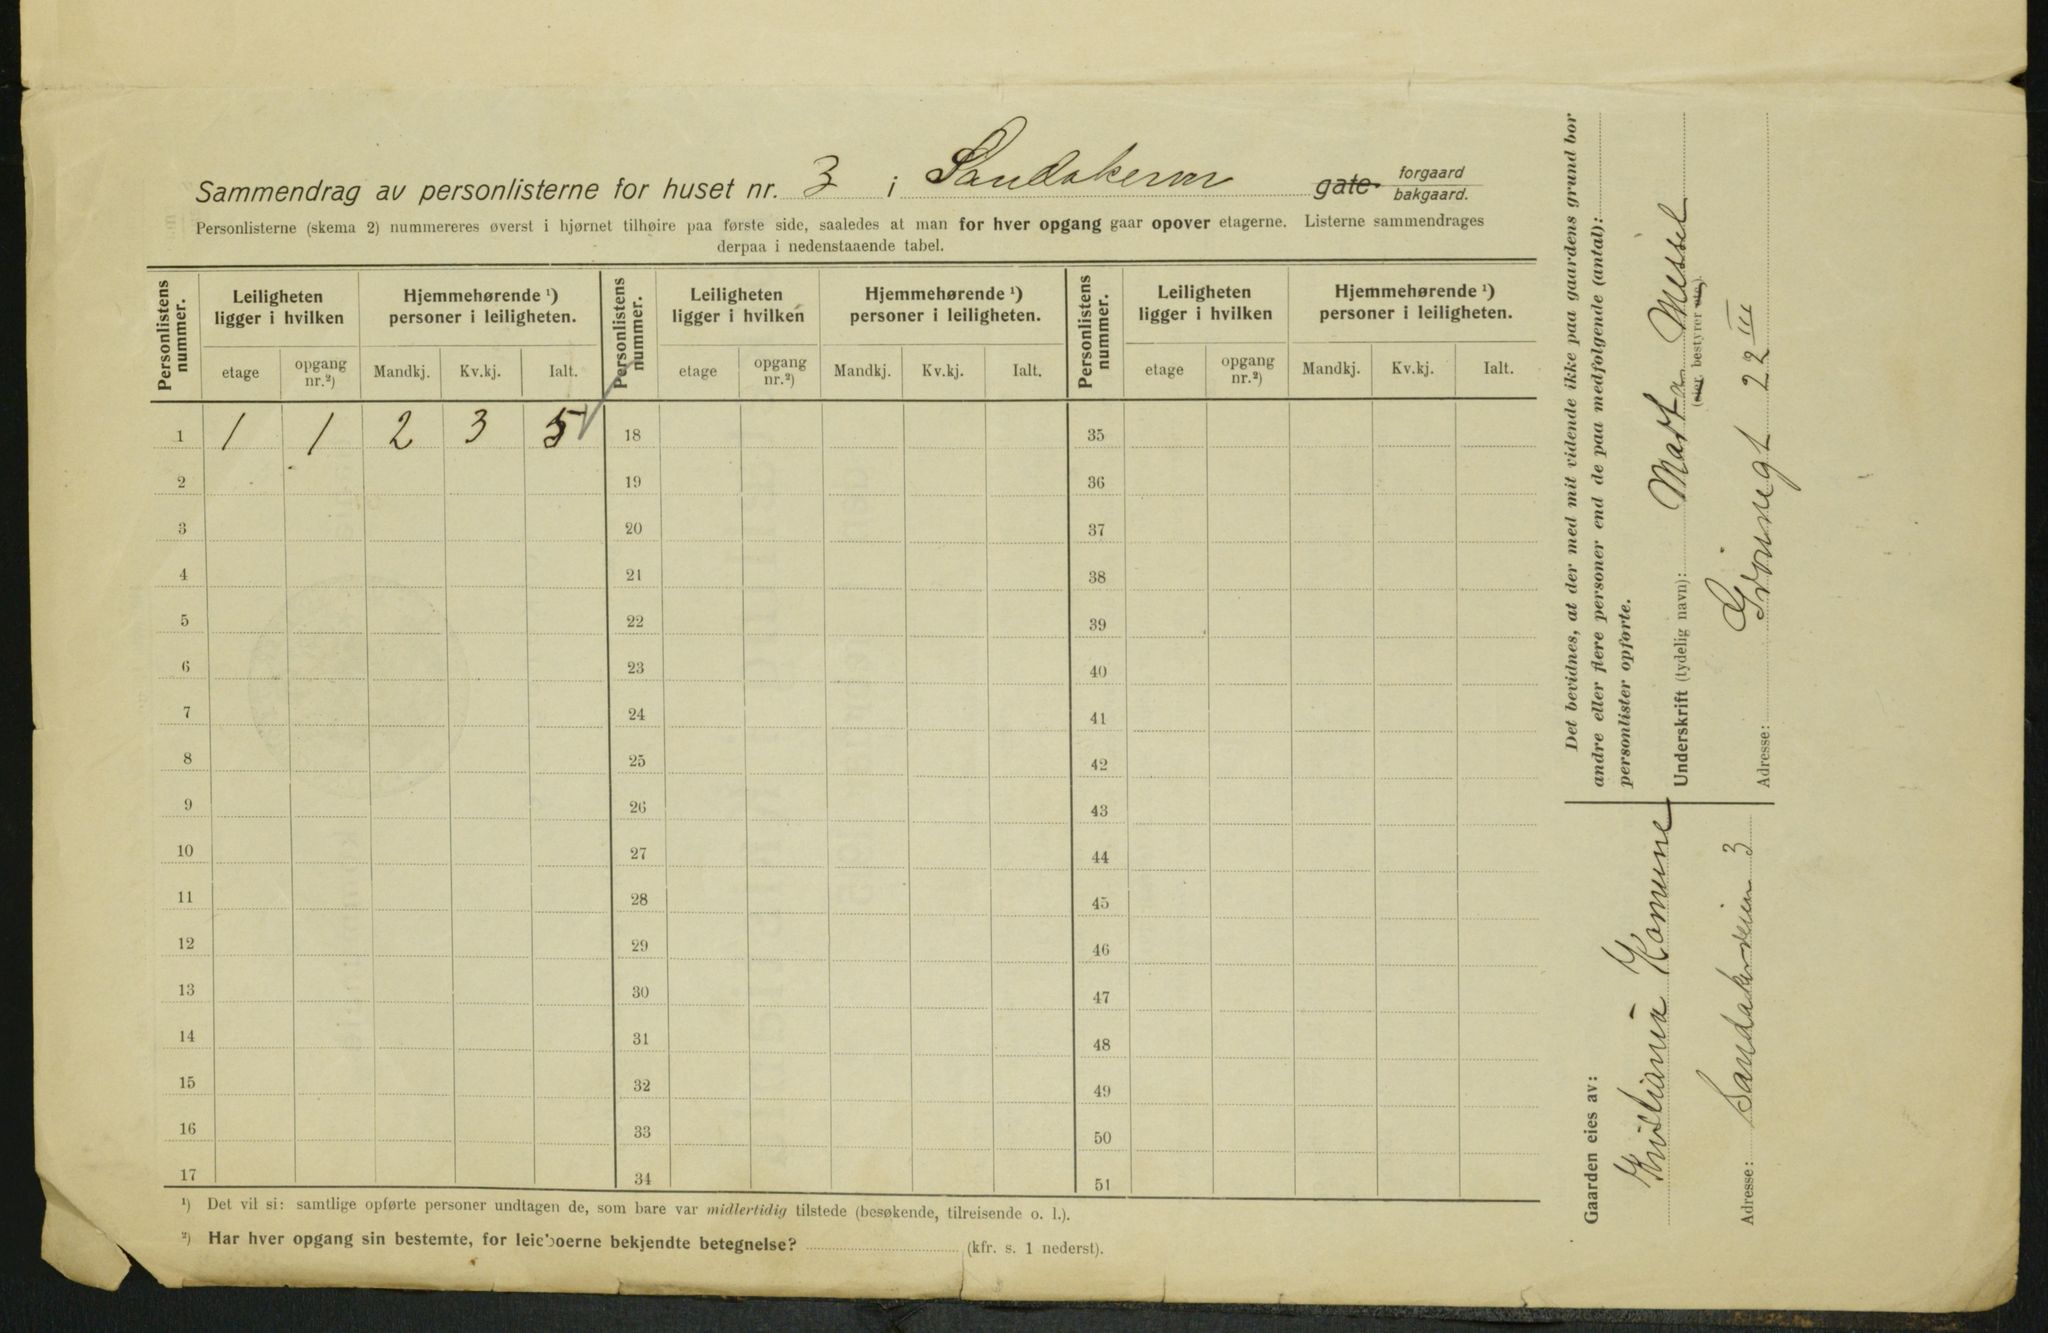 Sammendrag av personlisterne for huset nr. 3 i Sandakerver gate forgaard bakgaard.
Personlisterne (skema 2) nummereres øverst i hjørnet tilhøire paa første side, saaledes at man for hver opgang gaar opover etagerne. Listerne sammendrages
derpaa i nedenstaaende tabel.
Personlistens nummer. Leiligheten ligger i hvilken Hjemmehørende ¹) personer i leiligheten. Personlistens nummer. Leiligheten ligger i hvilken Hjemmehørende ¹) personer i leiligheten. Personlistens nummer. Leiligheten ligger i hvilken Hjemmehørende ¹) personer i leiligheten.
etage opgang nr.²) Mandkj. Kv.kj. Ialt. etage opgang nr.²) Mandkj. Kv.kj. Ialt. etage opgang nr.²) Mandkj. Kv.kj. Ialt.
1 1 1 2 3 5 18 35
2 19 36
3 20 37
4 21 38
5 22 39
6 23 40
7 24 41
8 25 42
9 26 43
10 27 44
11 28 45
12 29 46
13 30 47
14 31 48
15 32 49
16 33 50
17 34 51
¹) Det vil si: samtlige opførte personer undtagen de, som bare var midlertidig tilstede (besøkende, tilreisende o. l.).
²) Har hver opgang sin bestemte, for leieboerne bekjendte betegnelse? (kfr. s. 1 nederst).
Det bevidnes, at der med mit vidende ikke paa gaardens grund bor
andre eller flere personer end de paa medfølgende (antal):
personlister opførte.
Underskrift (tydelig navn): Marta Messel
(eier, bestyrer etc.).
Adresse: Grönnegt 22 III
Gaarden eies av:
Kristiania Komune
Adresse: Sandakerveien 3